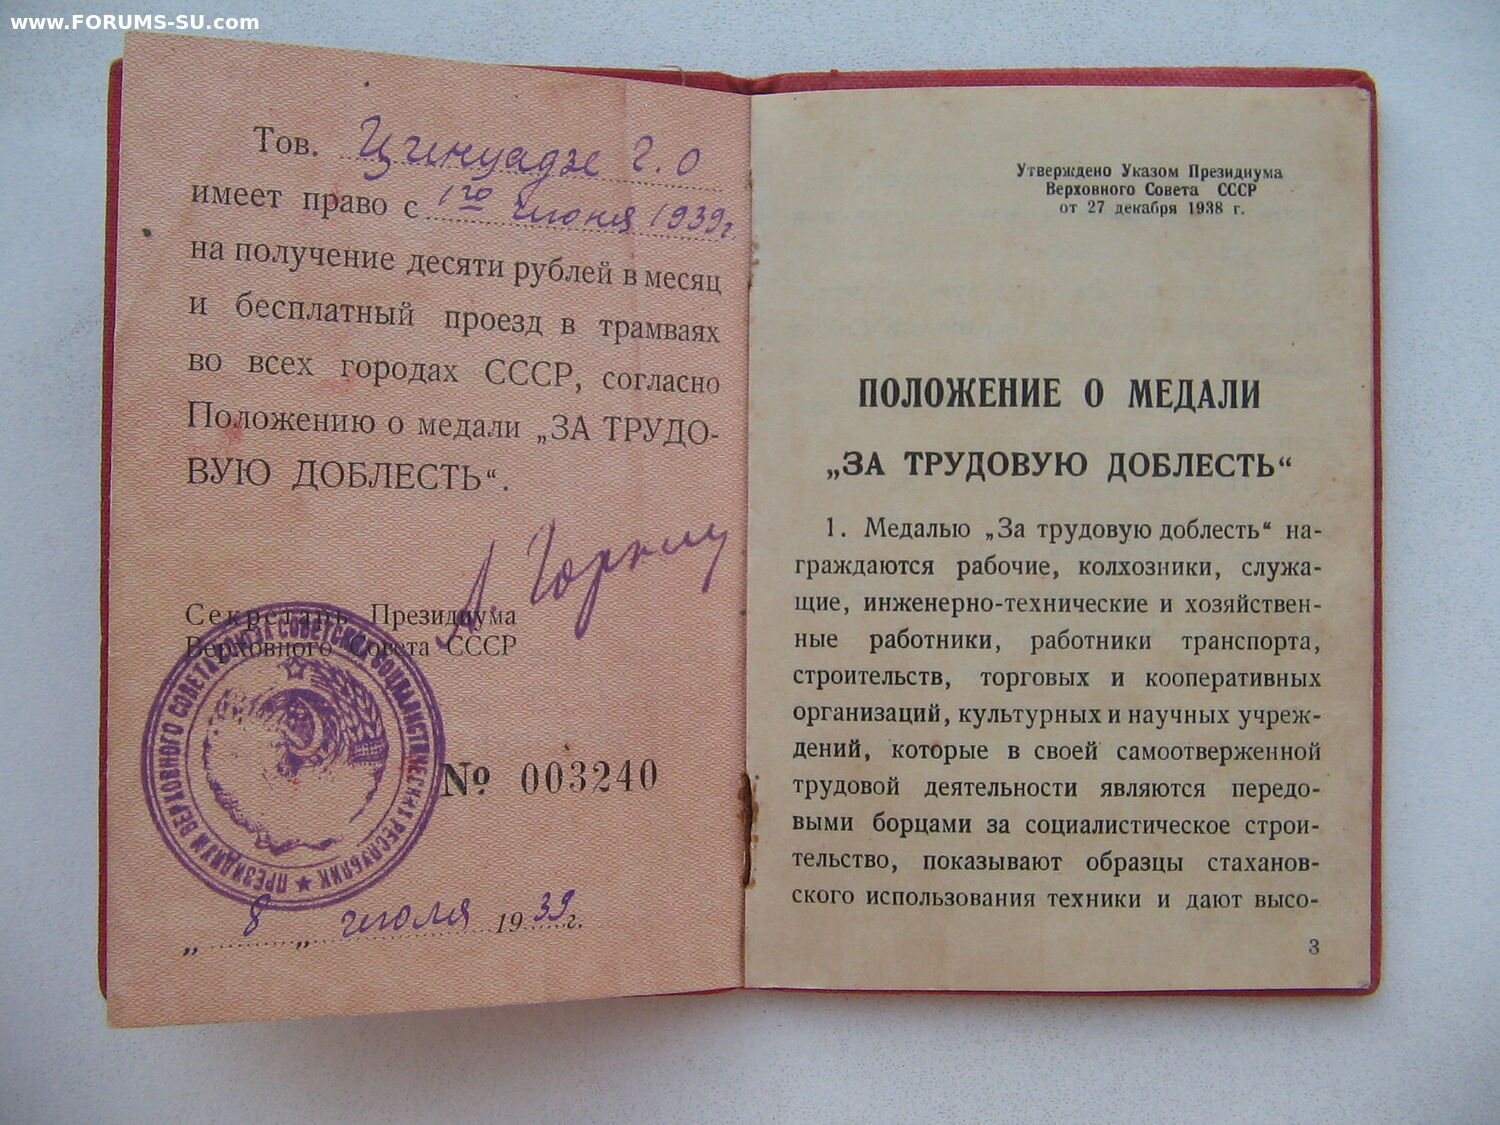 www.FORUMS-SU.com
Тов. Цинуадзе Г. О
имеет право с 1го июня 1939г
на получение десяти рублей в месяц
и бесплатный проезд в трамваях
во всех городах СССР, согласно
Положению о медали „ЗА ТРУДО-
ВУЮ ДОБЛЕСТЬ“.
А. Горкин
Секретарь Президиума
Верховного Совета СССР
ПРЕЗИДИУМ ВЕРХОВНОГО СОВЕТА СОЮЗА СОВЕТСКИХ СОЦИАЛИСТИЧЕСКИХ РЕСПУБЛИК
№ 003240
„ 8 „ июля 1939г.
Утверждено Указом Президиума
Верховного Совета СССР
от 27 декабря 1938 г.
ПОЛОЖЕНИЕ О МЕДАЛИ
„ЗА ТРУДОВУЮ ДОБЛЕСТЬ“
1. Медалью „За трудовую доблесть“ на-
граждаются рабочие, колхозники, служа-
щие, инженерно-технические и хозяйствен-
ные работники, работники транспорта,
строительств, торговых и кооперативных
организаций, культурных и научных учреж-
дений, которые в своей самоотверженной
трудовой деятельности являются передо-
выми борцами за социалистическое строи-
тельство, показывают образцы стаханов-
ского использования техники и дают высо-
3